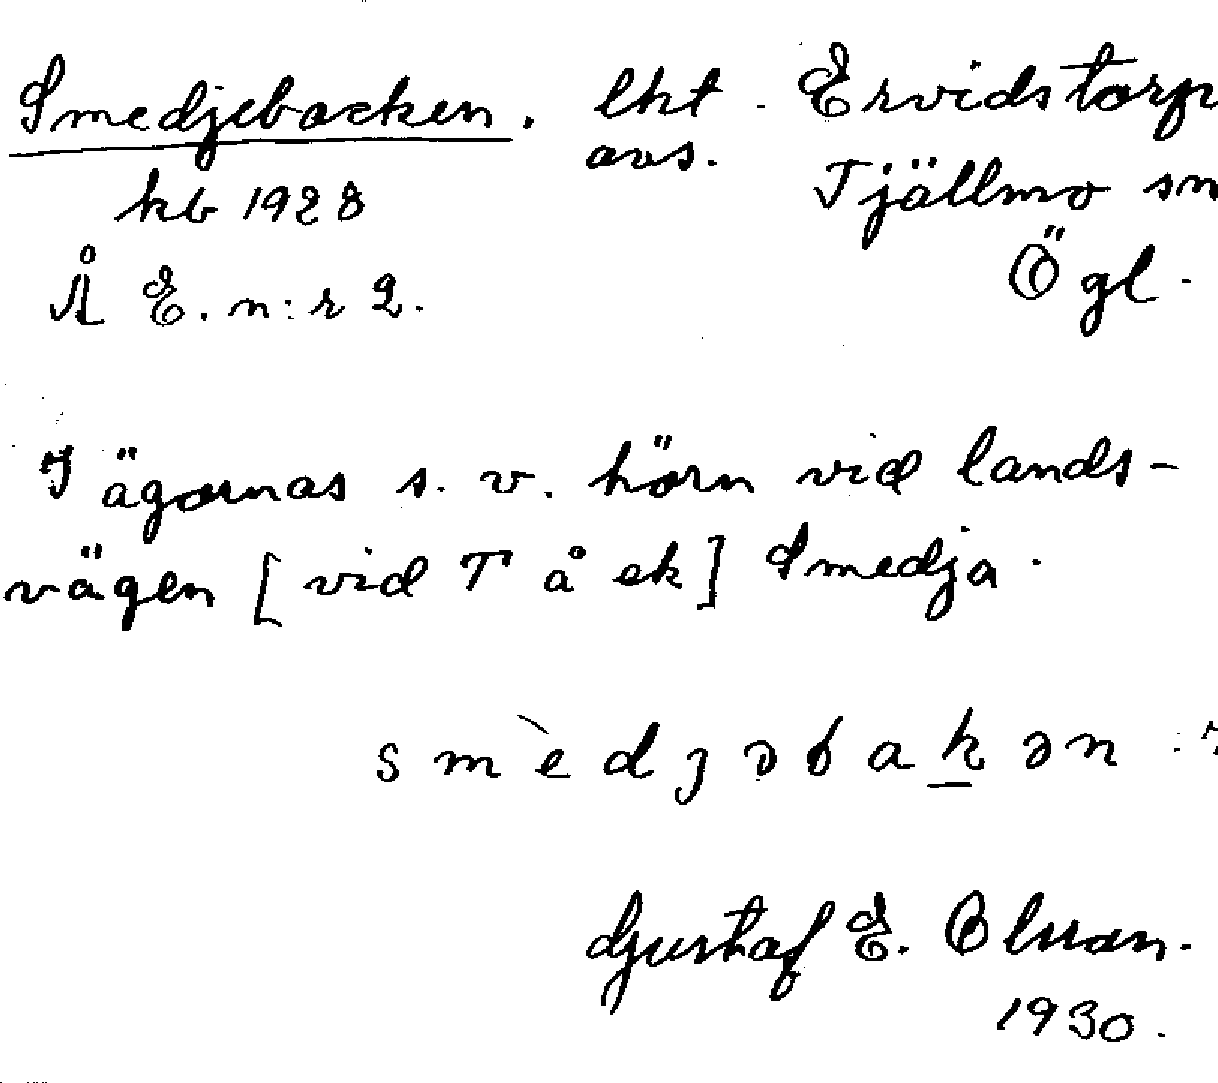 Smedjebacken. lht. Ervidstorp
avs. Tjällmo sn
kb 1928
Ögl.
Å E. n:r 2.
I ägornas s. v. hörn vid lands-
vägen [vid T å ek] Smedja.
smèdjəbakən
Gustaf E. Olsson.
1930.